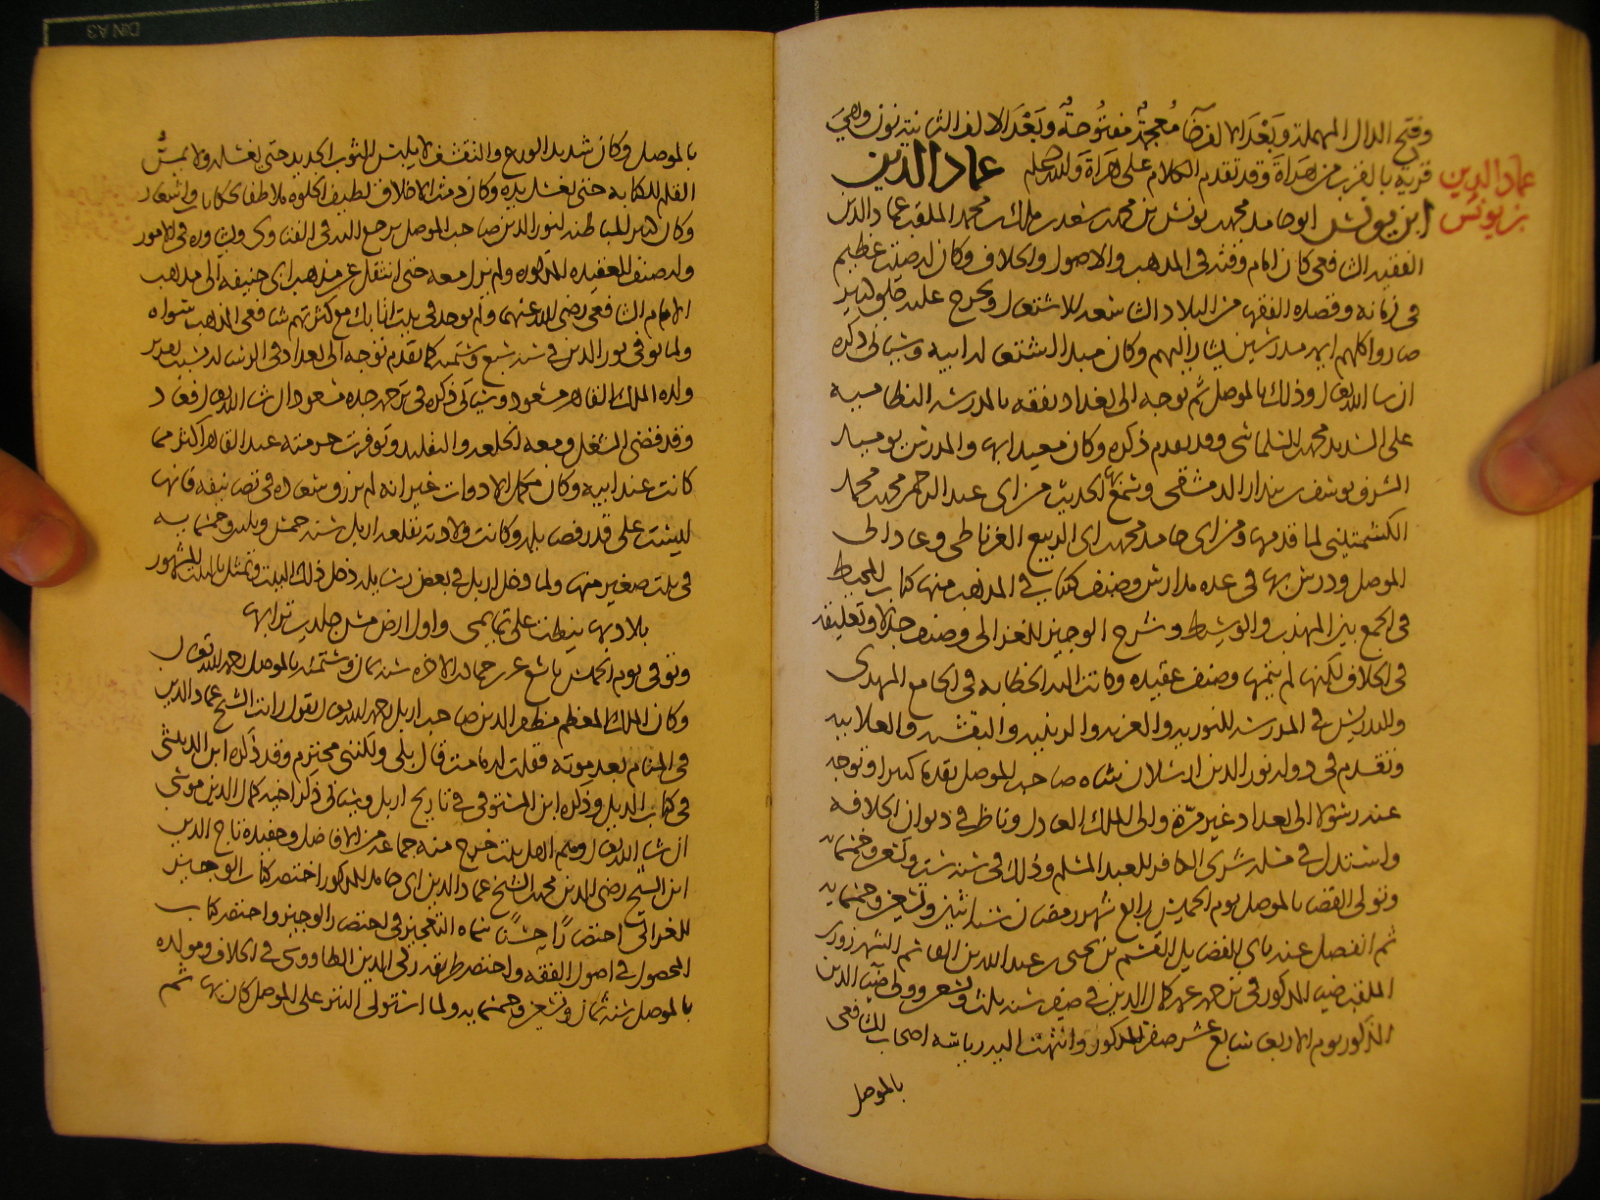 وفتح الدال المهملة وبعد الالف ضاد معجمة مفتوحة وبعد الالف الثانية نون وهي
قرية بالقرب من هراة وقد تقدم الكلام على هراة والله اعلم عماد الدين
عماد الدين
بن يونس
ابن يونس ابو حامد محمد بن يونس بن محمد بن سعد بن مالك بن محمد الملقب عماد الدين
الفقيه الشافعي كان امام وقته في المذهب والاصول والخلاف وكان له صيت عظيم
في زمانه وقصده الفقها من البلاد الشاسعة للاشتغال وتخرج عليه خلق كثير
صاروا كلهم ايمه مدرسين يشار اليهم وكان مبدا اشتغاله على ابيه وسياتي ذكره
ان شا الله تعالى وذلك بالموصل ثم توجه الى بغداد وتفقه بالمدرسه النظاميه
على السديد محمد السلماسي وقد تقدم ذكره وكان معيدا بها والمدرس بها يوميذ
الشرف يوسف بن بندار الدمشقي وسمع بها الحديث من ابي عبد الرحمن محمد بن محمد
الكشميهني لما قدمها ومن ابي حامد محمد بن ابي الربيع الغرناطي وعاد الى
الموصل ودرس بها في عدة مدارس وصنف كتبا في المذهب منها كتاب المحيط
في الجمع بين المهذب والوسيط وشرح الوجيز للغزالي وصنف جدلا وتعليقه
في الخلاف لكنها لم يتمها وصنف عقيده وكانت اليه الخطابه في الجامع المجاهدي
والتدريس في المدرسه النوريه والعزيه والزينيه والنفيسيه والعلاييه
وتقدم في دوله نور الدين ارسلان شاه صاحب الموصل تقدما كثيرا وتوجه
عنه رسولا الى بغداد غير مرة والى الملك العادل وناظر في ديوان الخلافه
واستدل في مسله شرى الكافر للعبد المسلم وذلك في سنه ست وتسعين وخمسمايه
وتولى القضا بالموصل يوم الخميس رابع شهر رمضان سنه اثنين وتسعين وخمسمايه
ثم انفصل عنه بابي الفضايل القسم بن يحيى بن عبد الله بن القاسم الشهرزوري
الملقب ضيا المذكور في ترجمه عمه كمال الدين في صفر سنه ثلث وتسعين وولى ضيا الدين
المذكور يوم الاربعا سابع عشر صفر المذكور وانتهت اليه رياسه اصحاب الشافعي
بالموصل
بالموصل وكان شديد الورع والتقشف لا يلبس الثوب الجديد حتى يغسله ولا يمس
القلم للكتابه حتى يغسل يده وكان دمث الاخلاق لطيف الخلوه ملاطفا بحكايات واشعار
وكان كثير المباطنه لنور الدين صاحب الموصل يرجع اليه في الفتاوى ويشاوره في الامور
وله صنف العقيده المذكوره ولم يزل معه حتى انتقل عن مذهب ابي حنيفه الى مذهب
الامام الشافعي رضي الله عنهما ولم يوجد في بيت اتابك مع كثرتهم شافعي المذهب سواه
ولما توفي نور الدين في سنه سبع وستميه كما تقدم توجه الى بغداد في الرساله بسبب تقرير
ولده الملك القاهر مسعود وسياتي ذكره في ترجمه جده مسعود ان شا الله تعالى فعاد
وقد قضى الشغل ومعه الخلعه والتقليد وتوفرت حرمته عند القاهر اكثر مما
كانت عند ابيه وكان مكمل الادوات غير انه لم يرزق سعاده في تصانيفه فانها
ليست على قدر فضايله وكانت ولادته بقلعه اربل سنه خمس وثلثين وخمسمايه
في بيت صغير منها ولما وصل الى اربل في بعض رسايله دخل ذلك البيت وتمثل بالبيت المشهور
بلاد بها نيطت علي تمايمي واول ارض مس جلدي ترابها
وتوفي يوم الخميس تاسع عشر جمادى الاخره سنه ثمان وستميه بالموصل رحمه الله تعالى
وكان الملك المعظم مظفر الدين صاحب اربل رحمه الله تعالى يقول رايت الشيخ عماد الدين
في المنام بعد موته فقلت له اما مت قال بلى ولكنني محترم وقد ذكره ابن الدبيثي
في كتاب الذيل وذكره ابن المستوفي في تاريخ اربل وسياتي ذكر اخيه كمال الدين موسى
ان شا الله تعالى وهم اهل بيت خرج منه جماعه من الافاضل وحفيده تاج الدين
ابن الشيخ رضي الدين محمد بن الشيخ عماد الدين ابي حامد المذكور اختصر كتاب الوجيز
للغزالي اختصارا حسنا سماه التعجيز في اختصار الوجيز واختصر كتاب
المحصول في اصول الفقه واختصر طريقه ركن الدين الطاووسي في الخلاف ومولده
بالموصل سنه ثمان وتسعين وخمسمايه ولما استولى التتر على الموصل كان بها ثم